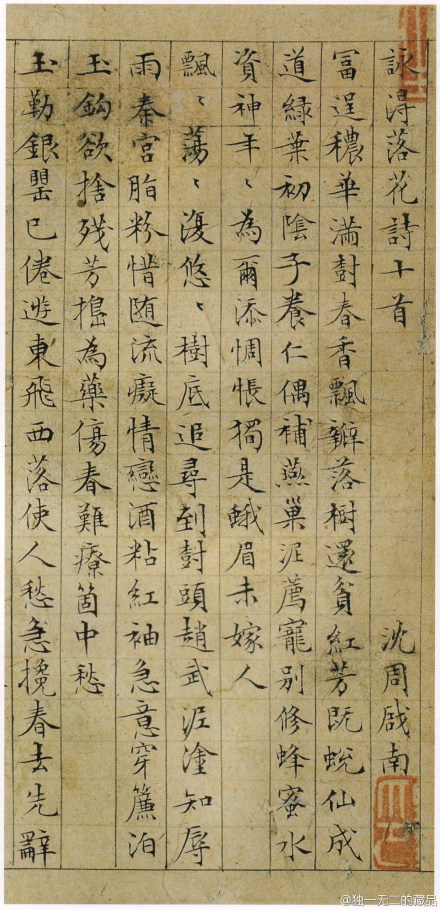 詠得落花詩十首 沈周啟南
富逞穠華滿樹春香飄瓣落樹還貧紅芳既蛻仙成
道綠葉初陰子養仁偶補燕巢泥薦寵別修蜂蜜水
資神年〻為爾添惆悵獨是蛾眉未嫁人
飄〻蕩〻復悠〻樹底追尋到樹頭趙武泥塗知辱
雨秦宮脂粉惜随流癡情戀酒粘紅袖急意穿簾泊
玉鈎欲捨殘芳搗為藥傷春難療箇中愁
玉勒銀罌已倦遊東飛西落使人愁急攙春去先辭
@独一无二的藏品